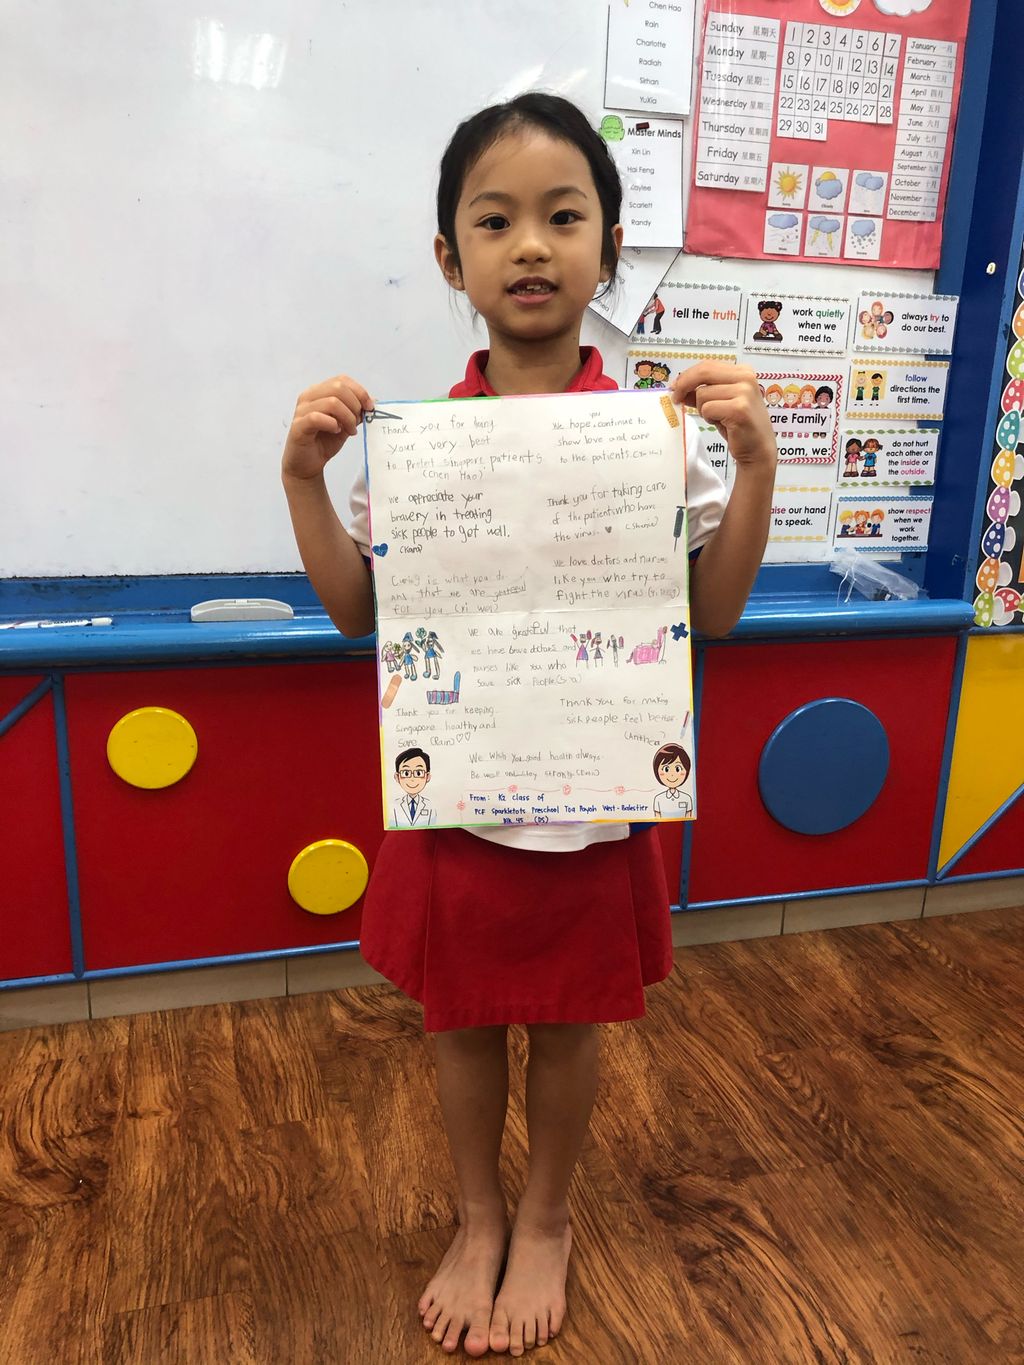 Chen Hao
Rain
Charlotte
Radiah
Sithan
YuXia
Master Minds
Xin Lin
Hai Feng
Kaylee
Scarlett
Randy
Sunday 星期天
Monday 星期一
Tuesday 星期二
Wednesday 星期三
Thursday 星期四
Friday 星期五
Saturday 星期六
1 2 3 4 5 6 7
8 9 10 11 12 13 14
15 16 17 18 19 20 21
22 23 24 25 26 27 28
29 30 31
January 一月
February 二月
March 三月
April 四月
May 五月
June 六月
July 七月
August 八月
September 九月
October 十月
November 十一月
December 十二月
tell the truth.
work quietly
when we
need to.
always try to
do our best.
follow
directions the
first time.
are Family
room, we:
do not hurt
each other on
the inside or
the outside.
with
her.
raise our hand
to speak.
show respect
when we
work
together.
Thank you for
your very best
to Protet singapore patients
(Chen Hao)
We hope you continue to
show love and care
to the patients.
We appreciate your
bravery in treating
sick people to get well.
Thank you for taking care
of the patients who have
the virus.
Caring is what you do
and that we are grateful
for you (Xi Wei)
We love doctors and nurses
like you who try to
fight the virus
We are grateful that
we have brave doctors and
nurses like you who
save sick people
Thank you for keeping
Singapore healthy and
safe (Rain)
Thank you for making
sick people feel better
We wish you good health always.
Be well and stay strong.
From: K2 class of
PCF Sparkletots Preschool Toa Payoh West-Balestier
Blk 45 (DS)